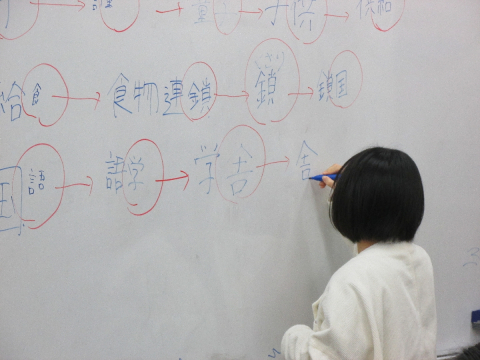 供給
給食 → 食物連鎖 → 鎖 → 鎖国
国語 → 語学 → 学舎 → 舎